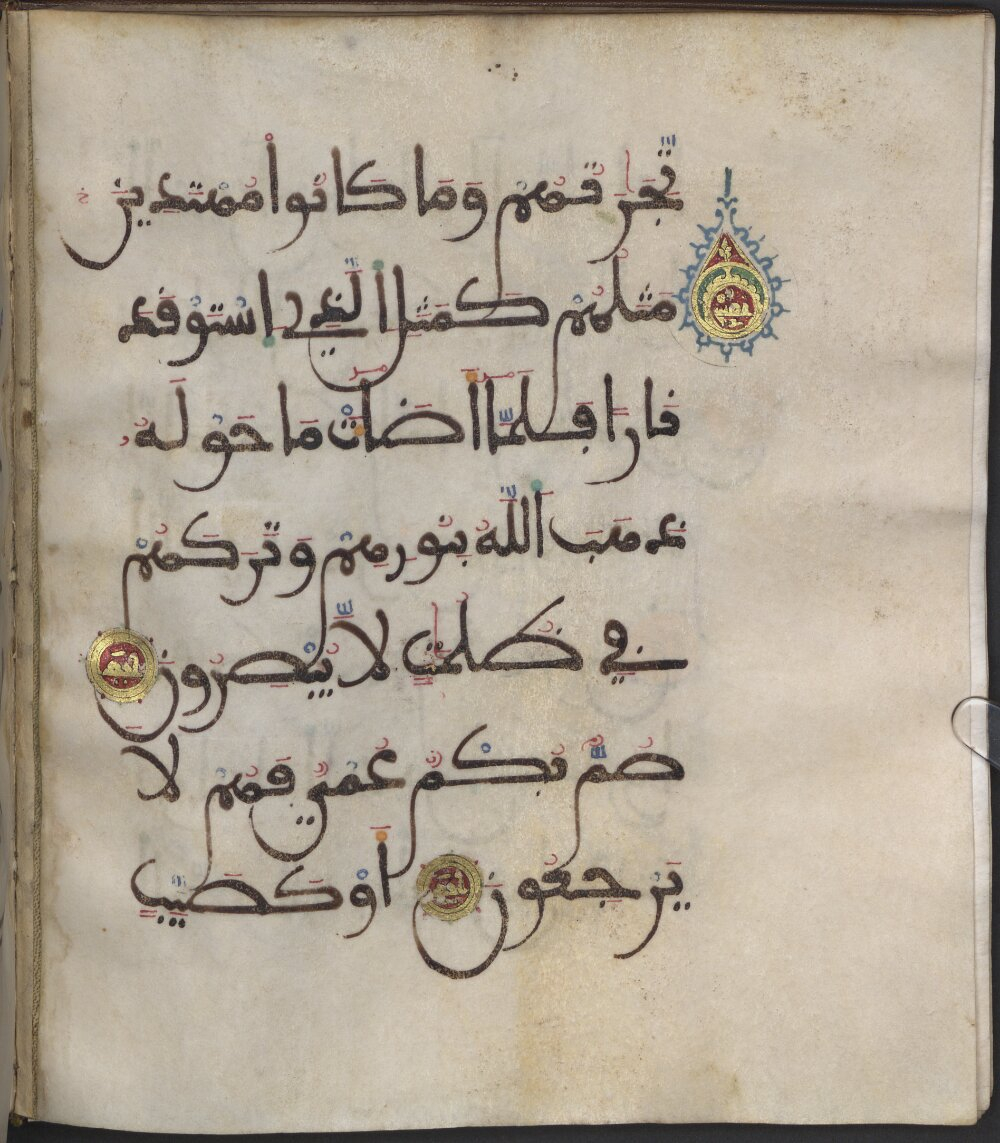 تِّجَٰرَتُهُمْ وَمَا كَانُواْ مُهْتَدِينَ
مَثَلُهُمْ كَمَثَلِ اِلَّذِے اِسْتَوْقَدَ
نَارًا فَلَمَّا أَضَآءَتْ مَا حَوْلَهُۥ
ذَهَبَ اَللَّهُ بِنُورِهِمْ وَتَرَكَهُمْ
فِي ظُلُمَٰتٍ لَّا يُبْصِرُونَ
صُمٌّ بُكْمٌ عُمْيٌ فَهُمْ لَا
يَرْجِعُونَ أَوْ كَصَيِّبٍ